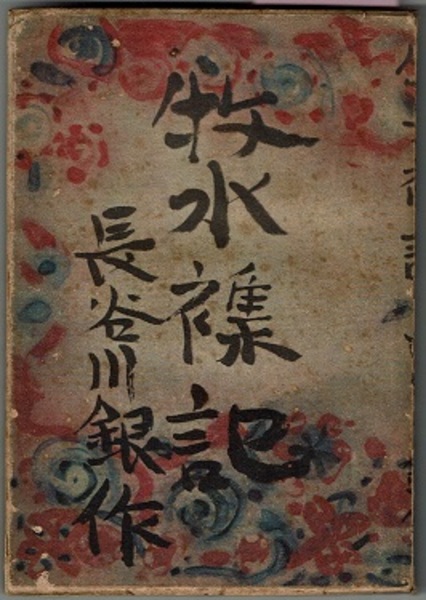 牧水襍記
長谷川銀作